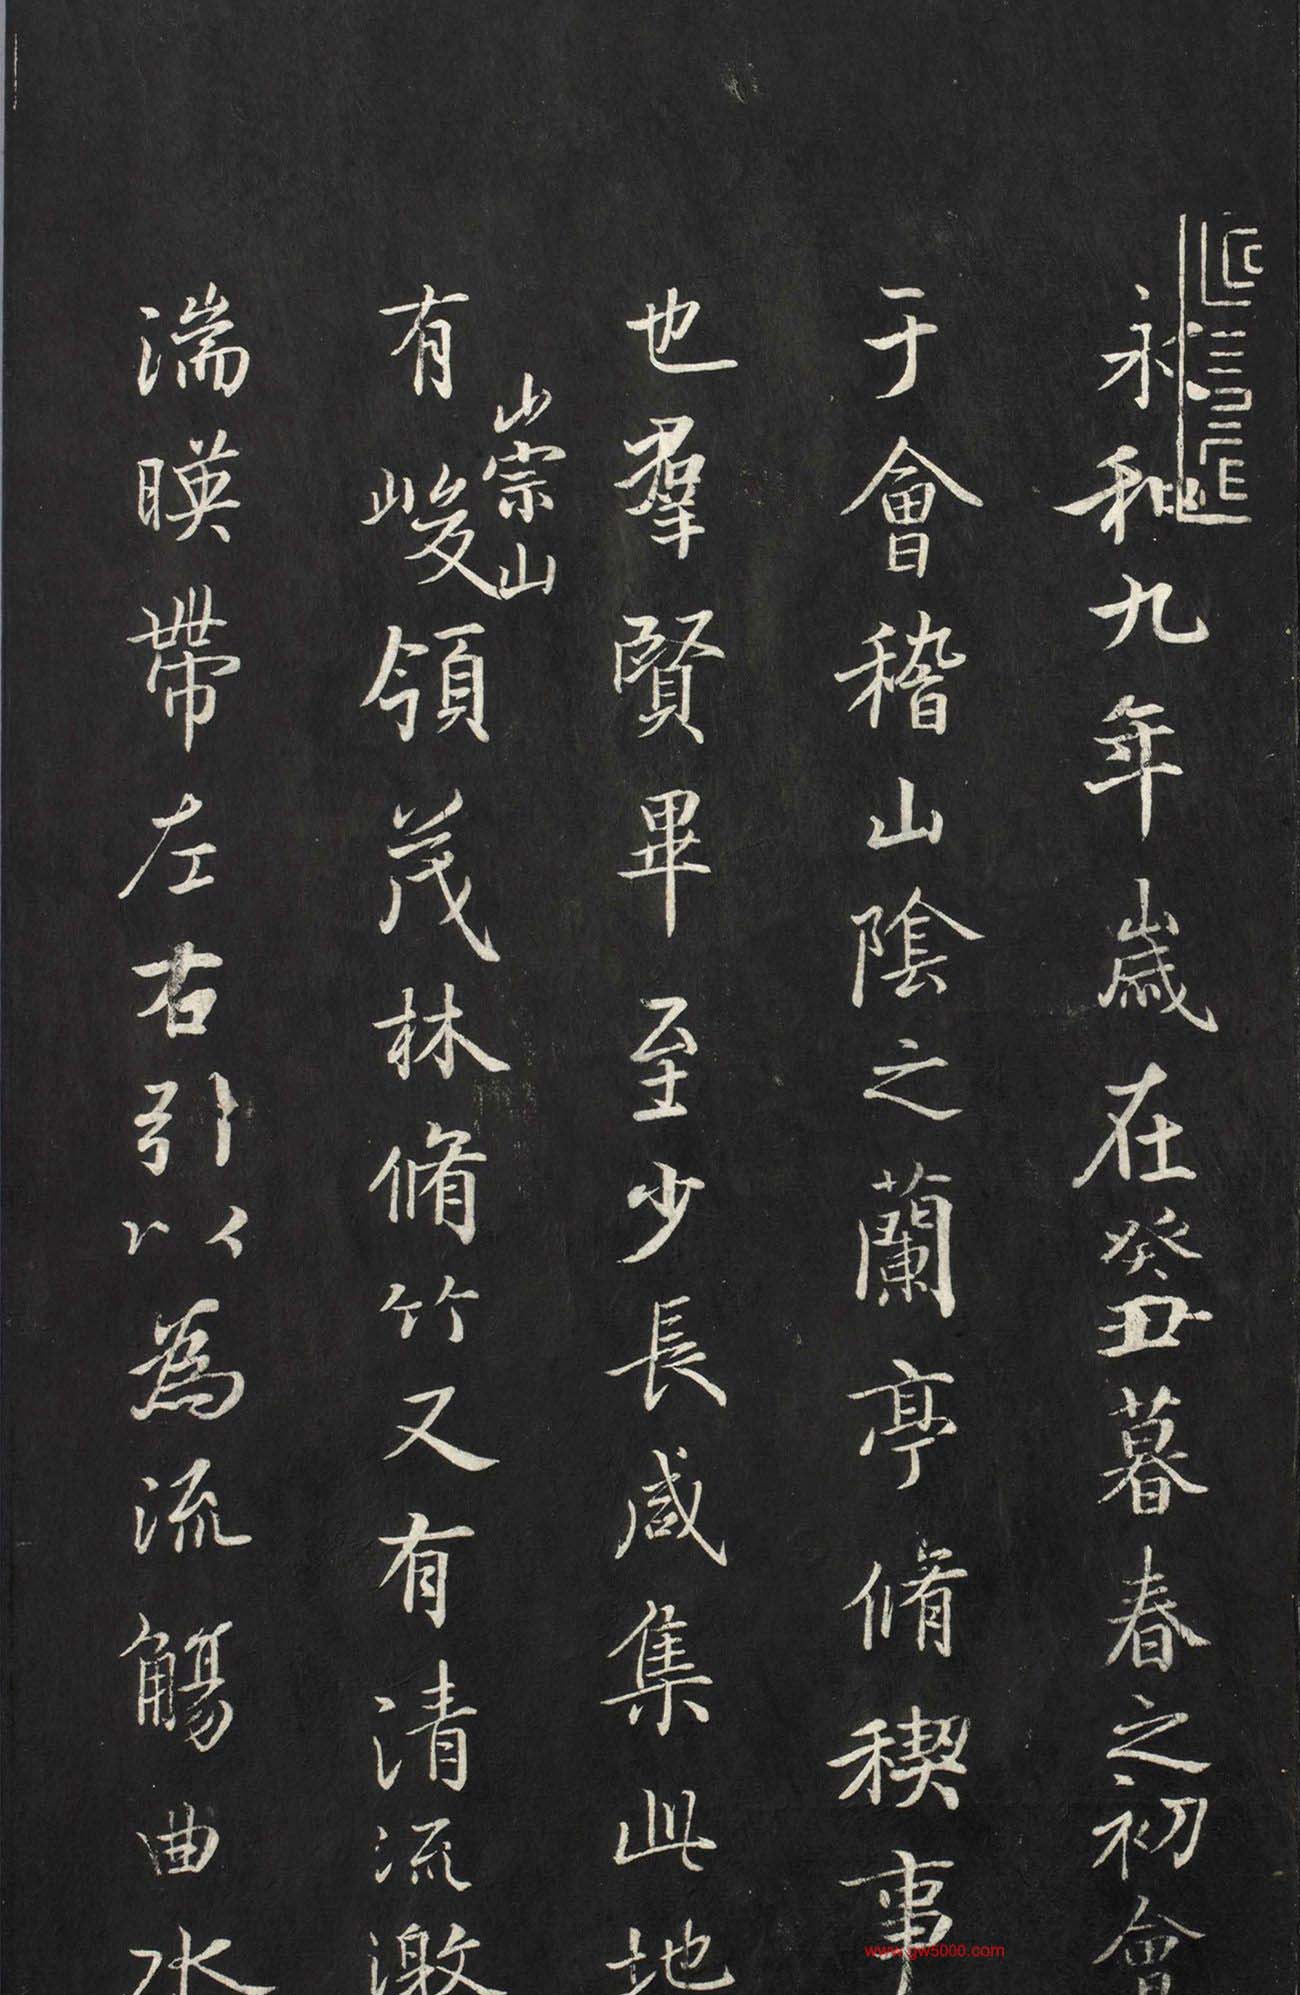 永和九年歲在癸丑暮春之初會
于會稽山陰之蘭亭脩稧事
也羣賢畢至少長咸集此地
有峻領茂林脩竹又有清流激
崇山
湍暎帶左右引以為流觴曲水
www.gw5000.com